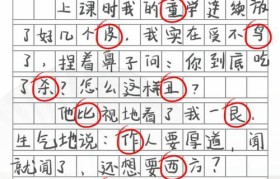 上课时我的童学连续放
了好几个，我实在受不
了，捏着鼻子问：你到底吃
了杀？怎么这样丑？
他比视地看了我一艮，
生气地说：作人要厚道，闻
就闻了，还想要西方？